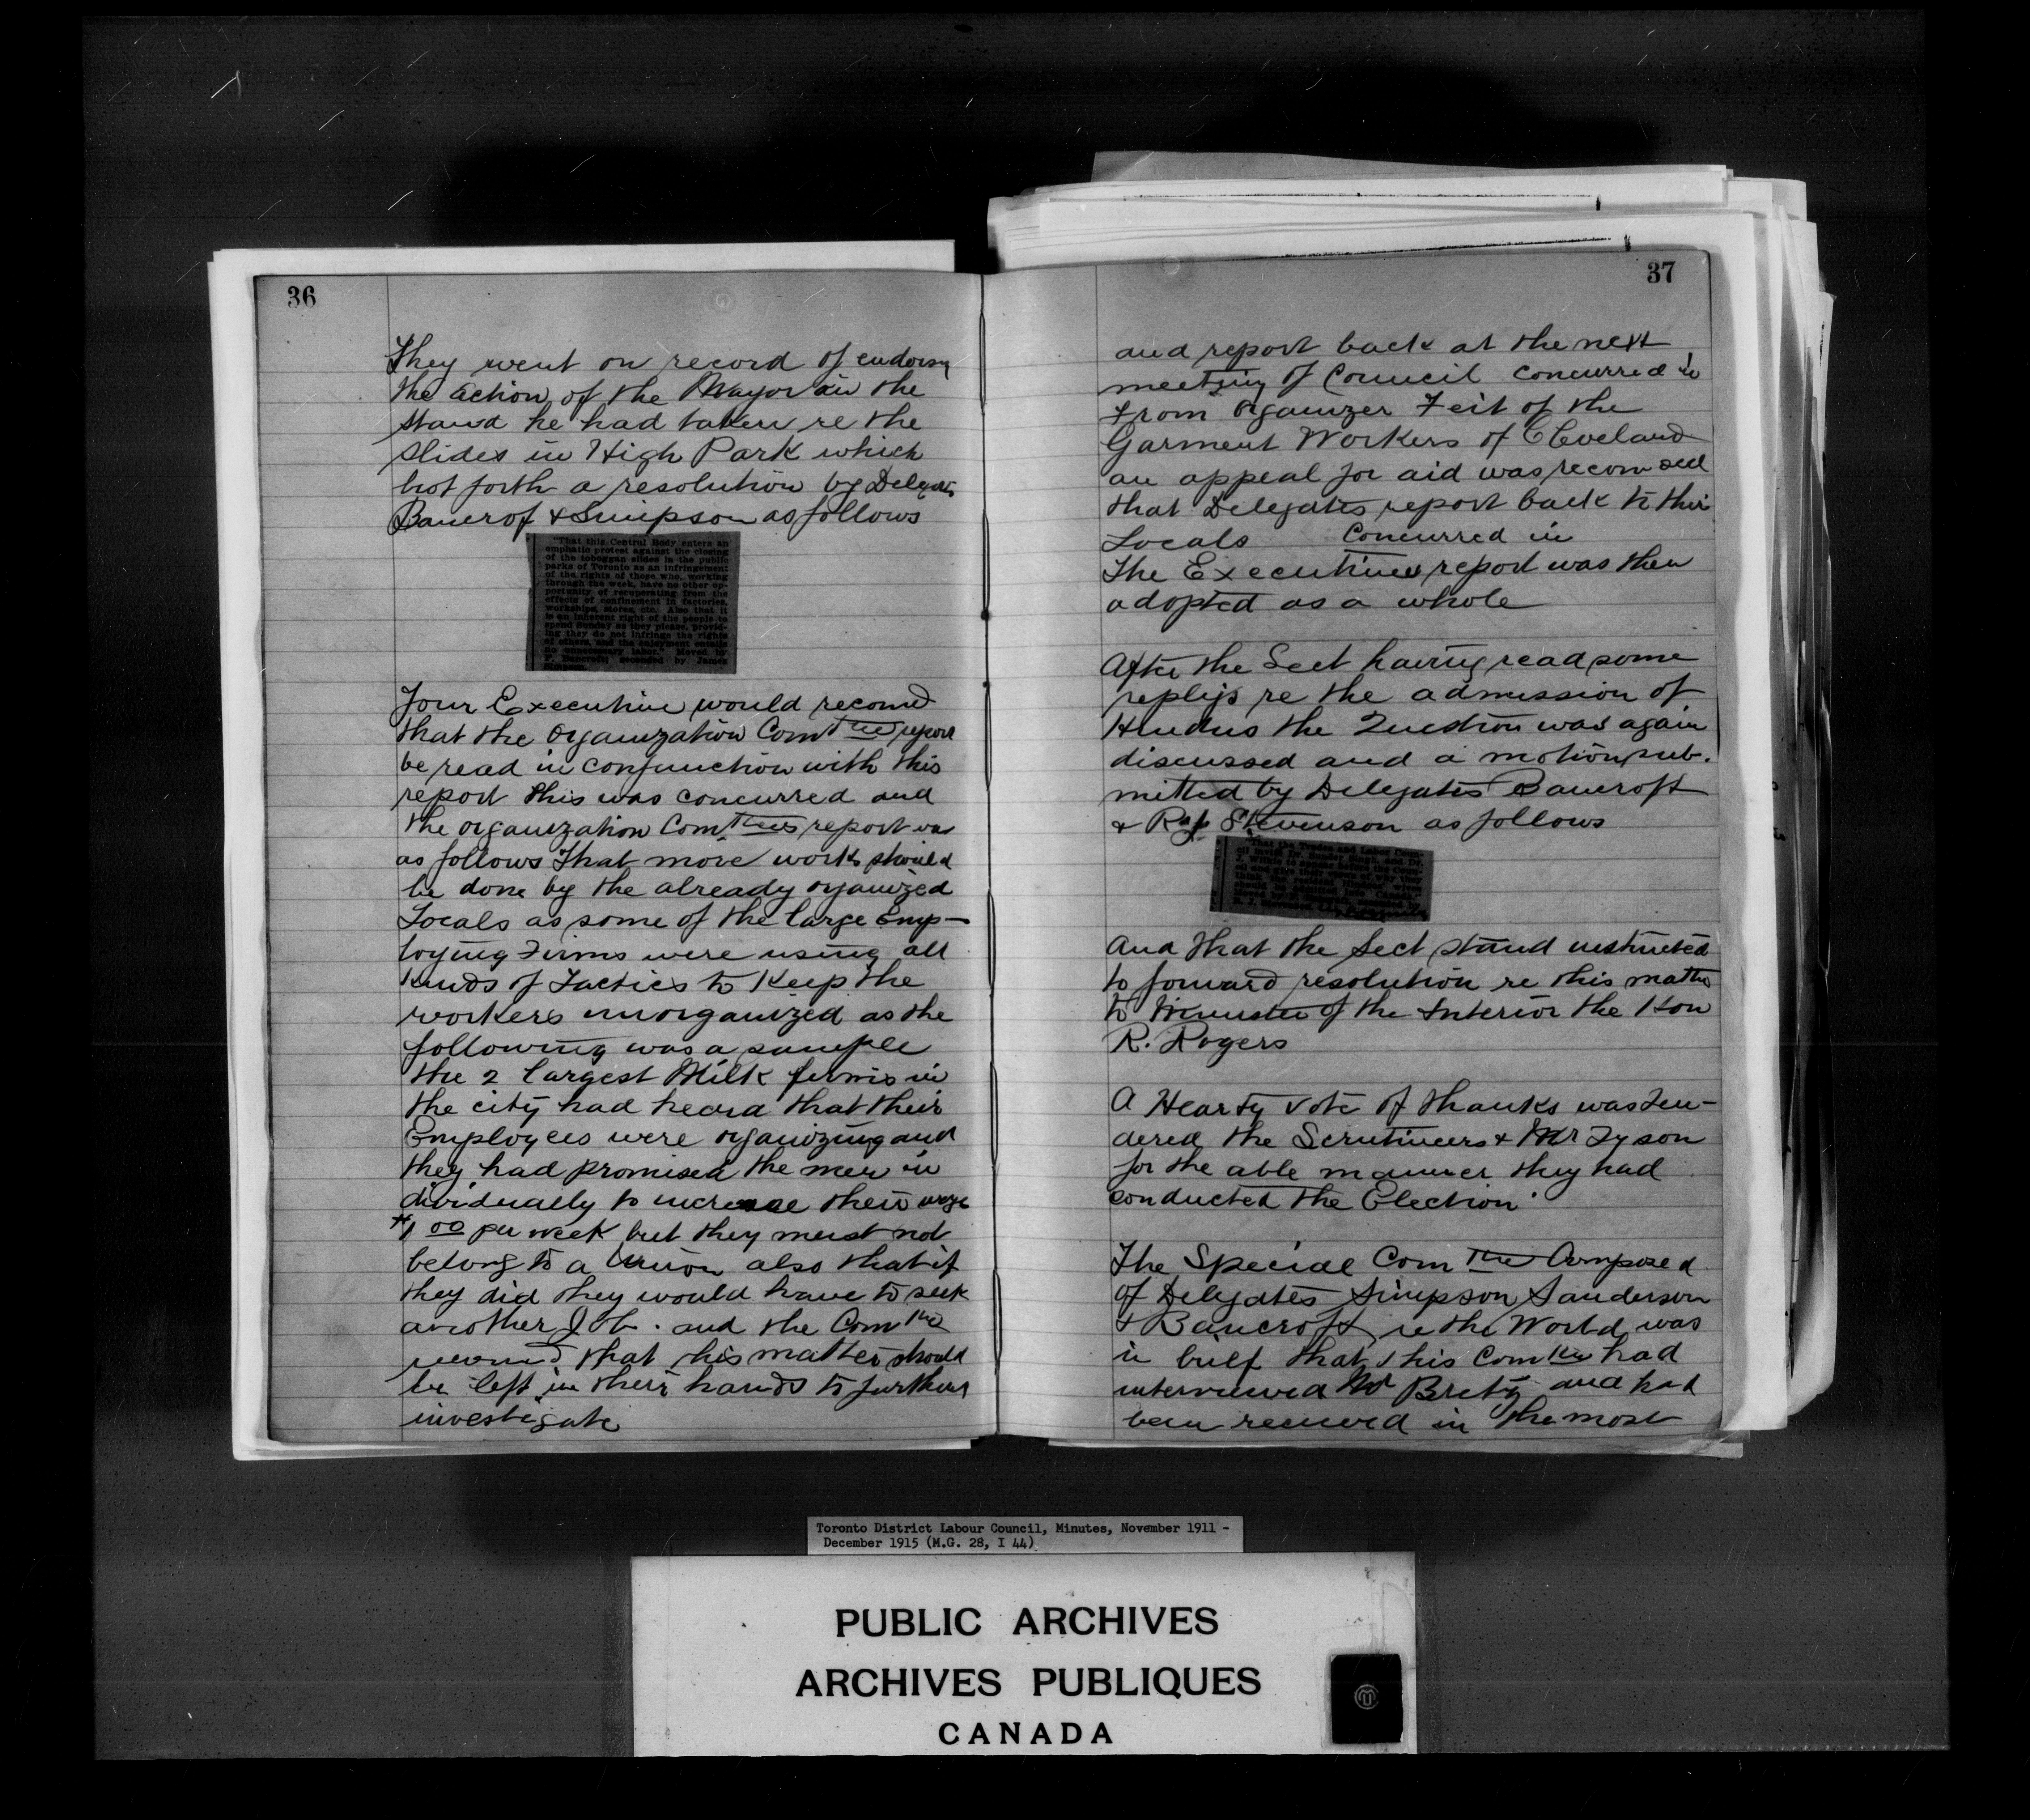 36
They went on record of endorsg
the action of the Mayor in the
stand he had taken re the
slides in High Park which
bot forth a resolution by Delegates
Bancrof & Simpson as follows
"That this Central Body enters an
emphatic protest against the closing
of the toboggan slides in the public
parks of Toronto as an infringement
of the rights of those who, working
through the week, have no other op-
portunity of recuperating from the
effects of confinement in factories,
workshops, stores, etc. Also that it
is an inherent right of the people to
spend Sunday as they please, provid-
ing they do not infringe the rights
of others, and the enjoyment entails
no unnecessary labor." Moved by
F. Bancroft; seconded by James
Simpson.
Your Executive would recomd
that the Organization Comttee report
be read in conjunction with this
report this was concurred and
the organization Comttees report was
as follows That more work should
be done by the already organized
Locals as some of the large Emp-
loying Firms were using all
kinds of Tactics to Keep the
workers unorganized as the
following was a sample
the 2 largest Milk firms in
the city had heard that their
Employees were organizing and
they had promised the men in
dividually to increase their wage
$1 00 per week but they must not
belong to a Union also that if
they did they would have to seek
another Job. and the Comttee
recomd that this matter should
be left in their hands to further
investigate
37
and report back at the next
meeting of Council concurred in
From Oganizer Feit of the
Garment Workers of Cleveland
an appeal for aid was recomded
that Delegates report back to their
Locals Concurred in
The Executives report was then
adopted as a whole
After the Sect having read some
replys re the admission of
Hindus the Question was again
discussed and a motion sub-
mitted by Delegates Bancroft
& Stevenson as follows
"That the Trades and Labor Coun-
cil invite Dr. Sunder Singh, and Dr.
J. Wilkie to appear before the Coun-
cil and give their views of why they
And that the Sect stand instructed
to forward resolution re this matter
to Minister of the Interior the Hon
R. Rogers
A Hearty vote of thanks was Ten-
dered the Scrutineers & Mr Tyson
for the able manner they had
conducted the Election.
The Special Comttee Composed
of Delegates Simpson Sanderson
& Bancroft re the World was
in brief that this Comttee had
interviewed Mr and had
been received in the most
Toronto District Labour Council, Minutes, November 1911 -
December 1915 (M.G. 28, I 44)
PUBLIC ARCHIVES
ARCHIVES PUBLIQUES
CANADA